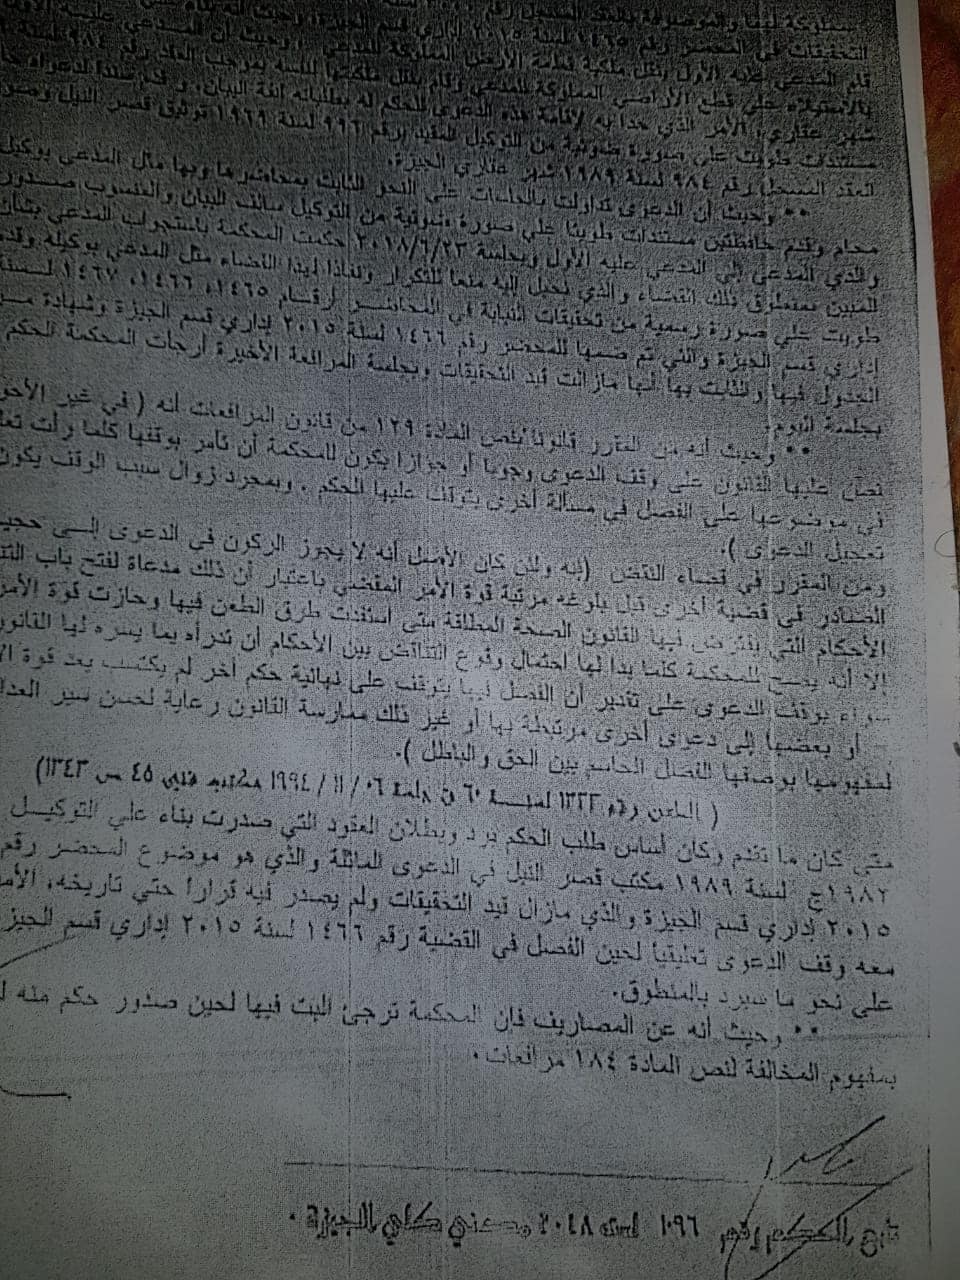 التحقيقات في المحضر رقم ١٤٦٥ لسنة ٢٠١٥ إداري قسم الجيزة وحيث
قام المدعي عليه الأول بنقل ملكية قطعة الأرض المملوكة للمدعي
بالاستيلاء على قطع الأراضي المملوكة للمدعي وقام بنقل ملكيتها لنفسه بموجب العقد رقم ٩٨٤ لسنة
شهر عقاري، والأمر الذي حدا به لإقامة هذه الدعوى للحكم له بطلباته آنفة البيان، وقدم سنداً لدعواه
مستندات طويت على صورة ضوئية من التوكيل المقيد برقم ٩٩٦ لسنة ١٩٦٩ توثيق قصر النيل وصورة
العقد المسجل رقم ٩٨٤ لسنة ١٩٨٩ شهر عقاري الجيزة.
** وحيث أن الدعوى تداولت بالجلسات على النحو الثابت بمحاضرها وبها مثل المدعي بوكيل
محام وقدم حافظتين مستندات طويتا علي صورة ضوئية من التوكيل سالف البيان والمنسوب صدوره
والذي المدعي إلي المدعي عليه الأول وبجلسة ٢٠١٨/٦/٢٣ حكمت المحكمة باستجواب المدعي بشأن
المبين بمنطوق ذلك القضاء والذي نحيل إليه منعا للتكرار ونفاذا لهذا القضاء مثل المدعي بوكيله وقدم
طويت علي صورة رسمية من تحقيقات النيابة في المحاضر ارقام ١٤٦٥، ١٤٦٦، ١٤٦٧ لسنة
إداري قسم الجيزة والتي تم ضمها للمحضر رقم ١٤٦٦ لسنة ٢٠١٥ إداري قسم الجيزة وشهادة من
الجدول فيها والثابت بها أنها مازالت قيد التحقيقات وبجلسة المرافعة الأخيرة أرجأت المحكمة الحكم
بجلسة اليوم.
** وحيث أنه من المقرر قانونا بنص المادة ١٢٩ من قانون المرافعات أنه ( في غير الأحو
نص عليها القانون على وقف الدعوى وجوبا أو جوازا يكون للمحكمة أن تأمر بوقفها كلما رأت تعل
في موضوعها على الفصل في مسألة أخرى يتوقف عليها الحكم . وبمجرد زوال سبب الوقف يكون
تعجيل الدعوى ).
ومن المقرر في قضاء النقض (إنه ولئن كان الأصل أنه لا يجوز الركون في الدعوى إلى حجية
الصادر في قضية أخرى قبل بلوغه مرتبة قوة الأمر المقضي باعتبار أن ذلك مدعاة لفتح باب التن
الأحكام التي يفترض فيها القانون الصحة المطلقة متى استنفدت طرق الطعن فيها وحازت قوة الأمر
إلا أنه يصح للمحكمة كلما بدا لها احتمال وقوع التناقض بين الأحكام أن تدرأه بما يسره لها القانون
سواء بوقف الدعوى على تقدير أن الفصل فيها يتوقف على نهائية حكم آخر لم يكتسب بعد قوة الأ
أو بعضها إلى دعوى أخرى مرتبطة بها أو غير ذلك ممارسة القانون رعاية لحسن سير العدا
لمفهوميا بوصفها للفصل الحاسم بين الحق والباطل ).
( الطعن رقم ١٣٢٣ لسنة ٦٠ ق جلسة ٠٦ / ١١ / ١٩٩٤ مكتب فني ٤٥ ص ١٣٤٣)
متى كان ما تقدم وكان أساس طلب الحكم برد وبطلان العقود التي صدرت بناء علي التوكيل
١٩٨٢ج لسنة ١٩٨٩ مكتب قصر النيل في الدعوى الماثلة والذي هو موضوع المحضر رقم
٢٠١٥ إداري قسم الجيزة والذي مازال قيد التحقيقات ولم يصدر فيه قرارا حتي تاريخه، الأمر
معه وقف الدعوى تعليقيا لحين الفصل في القضية رقم ١٤٦٦ لسنة ٢٠١٥ إداري قسم الجيز
على نحو ما سيرد بالمنطوق.
** وحيث أنه عن المصاريف فإن المحكمة ترجئ البت فيها لحين صدور حكم منه ل
بمفهوم المخالفة لنص المادة ١٨٤ مرافعات.
تابع الحكم رقم ١٠٩٦ لسنة ٢٠١٨ مدني كلي الجيزة .